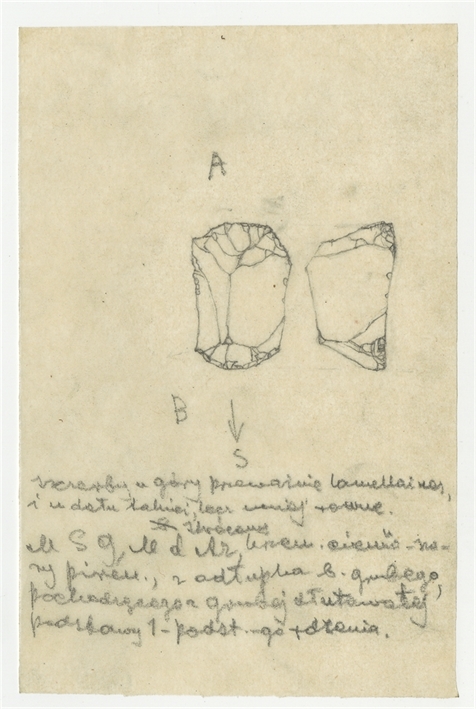 A
B
S
szczerby u góry przeważnie lamellaires,
i u dołu także, lecz mniej równe.
zwrócone
M S g, M d Az, krzem. ciemno-sza-
ry przśw., z odłupka b. grubego,
pochodzącego z grubej dłutowatej
podstawy 1-podst.-go rdzenia.